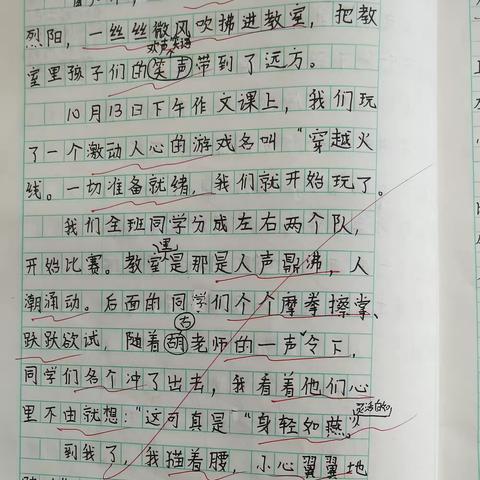 烈阳，一丝丝微风吹拂进教室，把教
欢声笑语
室里孩子们的笑声带到了远方。
10月13日下午作文课上，我们玩
了一个激动人心的游戏名叫“穿越火
线。一切准备就绪，我们就开始玩了。
我们全班同学分成左右两个队，
里
开始比赛。教室是那是人声鼎沸，人
潮涌动。后面的同学们个个摩拳擦掌、
跃跃欲试，随着胡老师的一声令下，
同学们各个冲了出去，我看着他们心
里不由就想：“这可真是“身轻如燕。”
到我了，我猫着腰，小心翼翼地